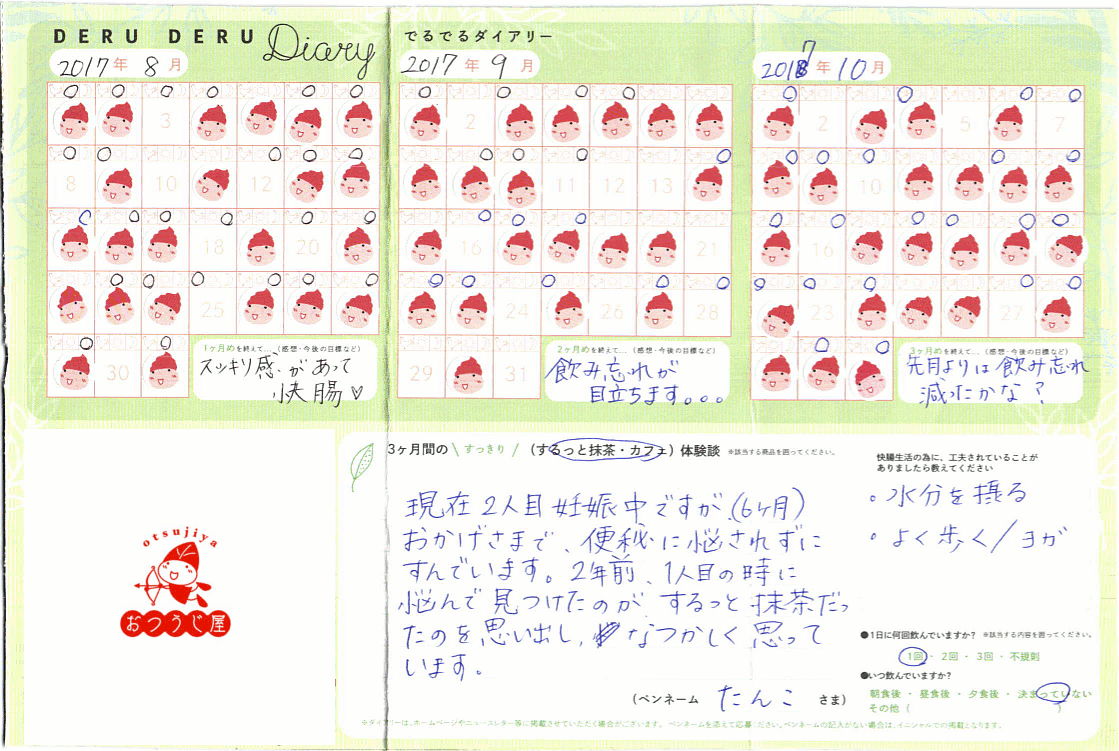 DERU DERU Diary
でるでるダイアリー
2017年 8月
2017年 9月
2017年 10月
3
8 10 12
18 20
25
30
1ヶ月めを終えて…（感想・今後の目標など）
スッキリ感があって
快腸♡
2
11 12 13
16 21
24 26 28
29 31
2ヶ月めを終えて…（感想・今後の目標など）
飲み忘れが
目立ちます。。。
2 5 7
10
16
23 27
3ヶ月めを終えて…（感想・今後の目標など）
先月よりは飲み忘れ
減ったかな？
otsujiya
おつうじ屋
3ヶ月間の \ すっきり /（するっと抹茶・カフェ）体験談 ※該当する商品を囲ってください。
現在2人目妊娠中ですが、(6ヶ月)
おかげさまで、便秘に悩されずに
すんでいます。2年前、1人目の時に
悩んで見つけたのが するっと抹茶だっ
たのを思い出し、なつかしく思って
います。
（ペンネーム たんこ さま）
快腸生活の為に、工夫されていることが
ありましたら教えてください
・水分を摂る
・よく歩く/ヨガ
●1日に何回飲んでいますか？ ※該当する内容を囲ってください。
1回・2回・3回・不規則
●いつ飲んでいますか？
朝食後・昼食後・夕食後・決まっていない
その他（ ）
※ダイアリーは、ホームページやニュースレター等に掲載させていただく場合がございます。ペンネームを添えて応募ください。ペンネームの記入がない場合は、イニシャルでの掲載となります。